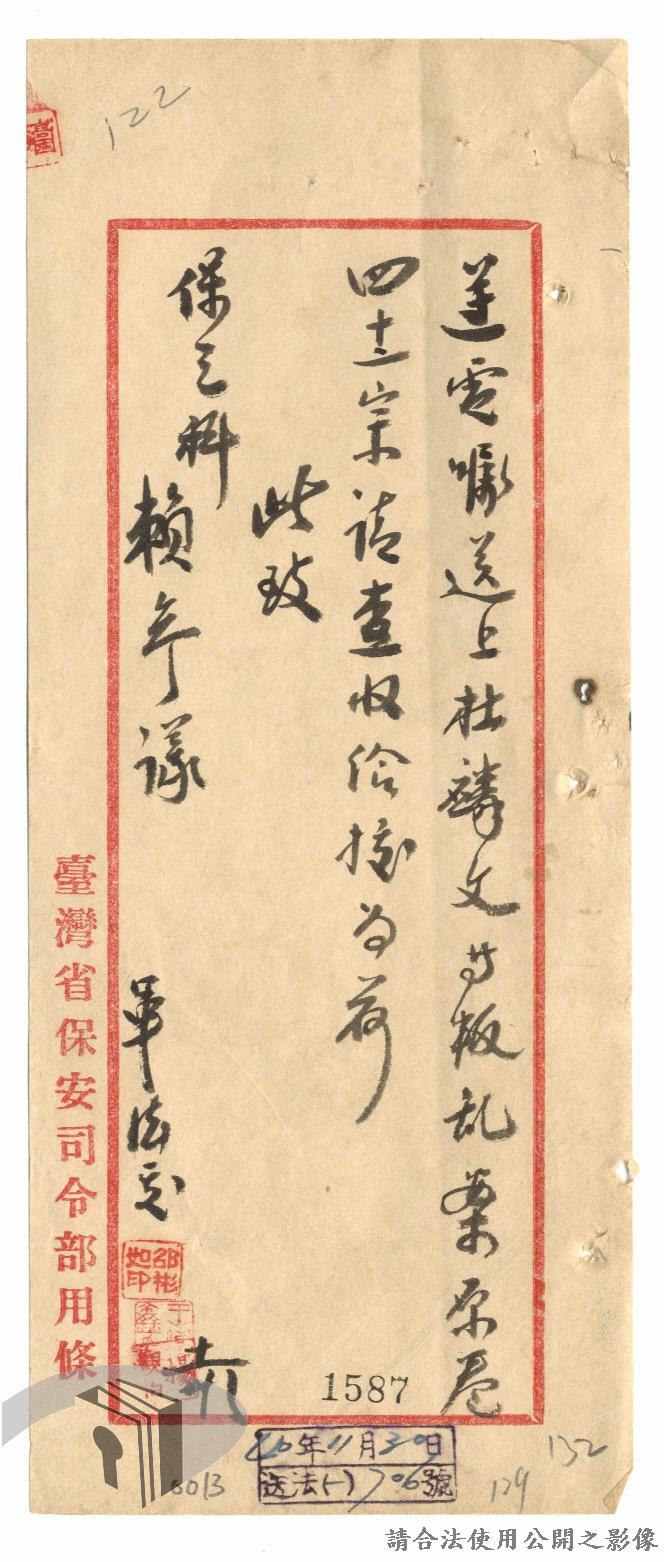 122
遵電囑送上杜麟文等叛乱案原卷
四十二宗請查收給據為荷
此致
保三科
賴參議
軍法處
邵彬如印
1587
臺灣省保安司令部用條
40年11月30日
送法(一)706號
6013
129
132
請合法使用公開之影像